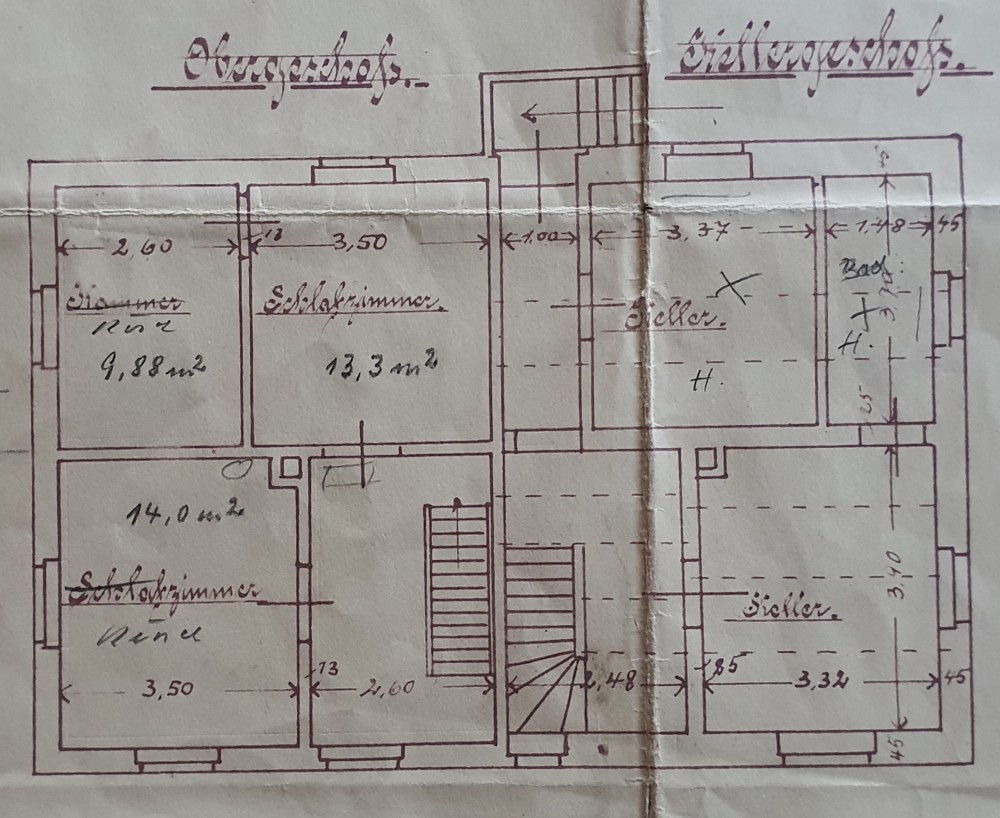 Obergeschoß.
Kellergeschoß.
2,60
13
3,50
1.00
3,37
1,48
45
Kammer
Kind
9,88 m²
Schlafzimmer.
13,3 m²
Keller.
H.
Bad
H.
25
14,0 m²
Schlafzimmer
Kind
3,50
13
2,60
2,48
25
Keller.
3,32
3,40
45
45